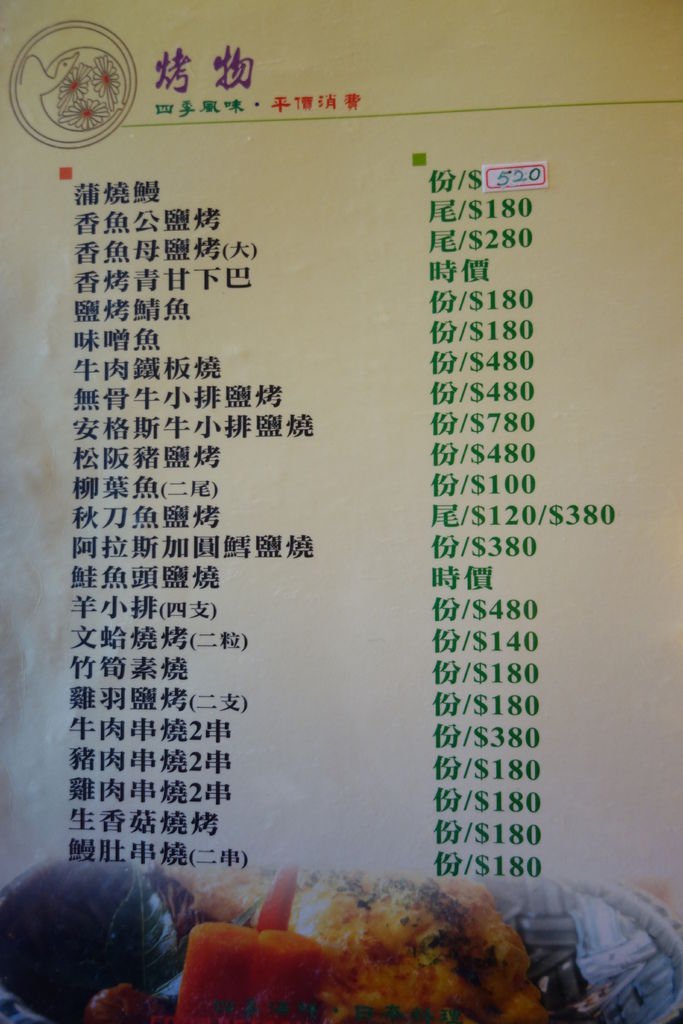 烤物
四季風味・平價消費
蒲燒鰻 份/$520
香魚公鹽烤 尾/$180
香魚母鹽烤(大) 尾/$280
香烤青甘下巴 時價
鹽烤鯖魚 份/$180
味噌魚 份/$180
牛肉鐵板燒 份/$480
無骨牛小排鹽烤 份/$480
安格斯牛小排鹽燒 份/$780
松阪豬鹽烤 份/$480
柳葉魚(二尾) 份/$100
秋刀魚鹽烤 尾/$120/$380
阿拉斯加圓鱈鹽燒 份/$380
鮭魚頭鹽燒 時價
羊小排(四支) 份/$480
文蛤燒烤(二粒) 份/$140
竹筍素燒 份/$180
雞羽鹽烤(二支) 份/$180
牛肉串燒2串 份/$380
豬肉串燒2串 份/$180
雞肉串燒2串 份/$180
生香菇燒烤 份/$180
鰻肚串燒(二串) 份/$180